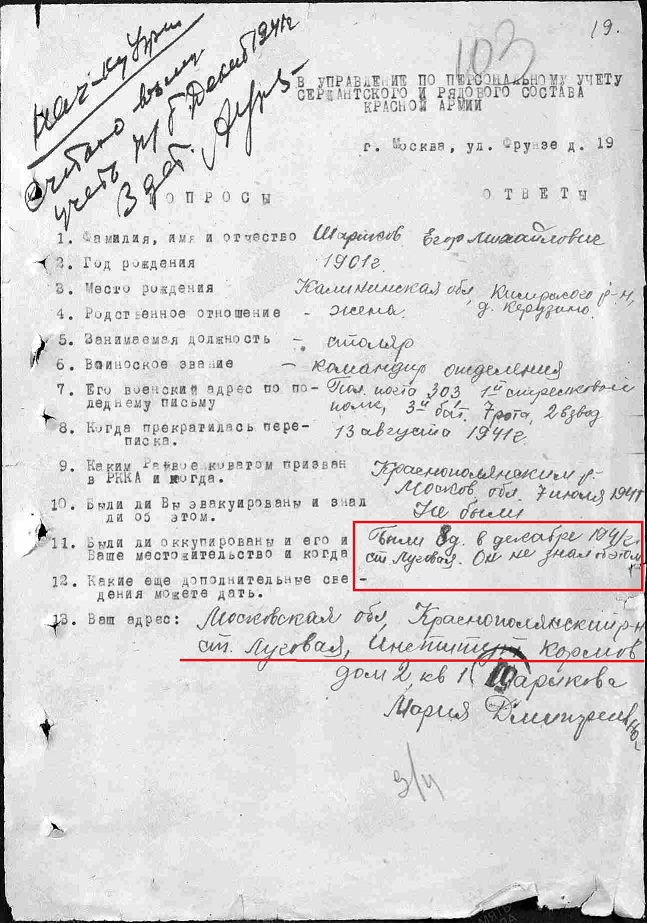 19.
103
Нач-ку Упр
Считаю взять на
учет п/б Декаб 1941г
3 дет.
В УПРАВЛЕНИЕ ПО ПЕРСОНАЛЬНОМУ УЧЕТУ
СЕРЖАНТСКОГО И РЯДОВОГО СОСТАВА
КРАСНОЙ АРМИИ
г. Москва, ул. Фрунзе д. 19
ВОПРОСЫ ОТВЕТЫ
1. Фамилия, имя и отчество Шариков Егор Михайлович
2. Год рождения 1901г.
3. Место рождения Калининская обл, Кимрского р-н,
д. Керузино.
4. Родственное отношение - жена.
5. Занимаемая должность - столяр
6. Воинское звание - командир отделения
7. Его военный адрес по по- Пол. почта 303 1й стрелковый
леднему письму полк, 3й бат. 7 рота, 2 взвод
8. Когда прекратилась пере- 13 августа 1941г.
писка.
9. Каким Райвоенкоматом призван Краснополянским р-
в РККА и когда. Москов. обл. 7 июля 1941
10. Были ли Вы эвакуированы и знал Не были
ли об этом.
11. Были ли оккупированы и его и Были 8д. в декабре 1941г.
Ваше местожительство и когда ст. Луговая. Он не знал об этом
12. Какие еще дополнительные све -
дения можете дать.
13. Ваш адрес: Московская обл, Краснополянский р-н
ст. Луговая, Институт Кормов
дом 2 кв 1 Шарикова
Мария Дмитриевна
3/4